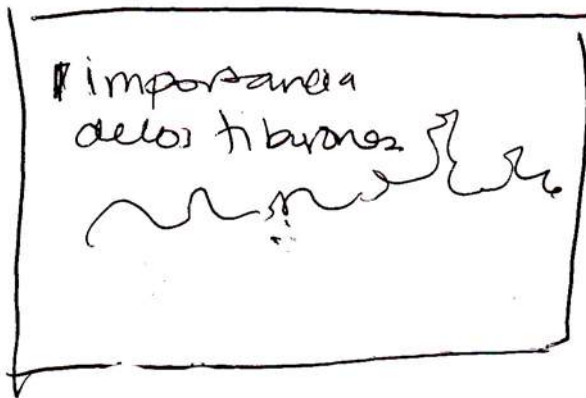 importancia
de los tiburones